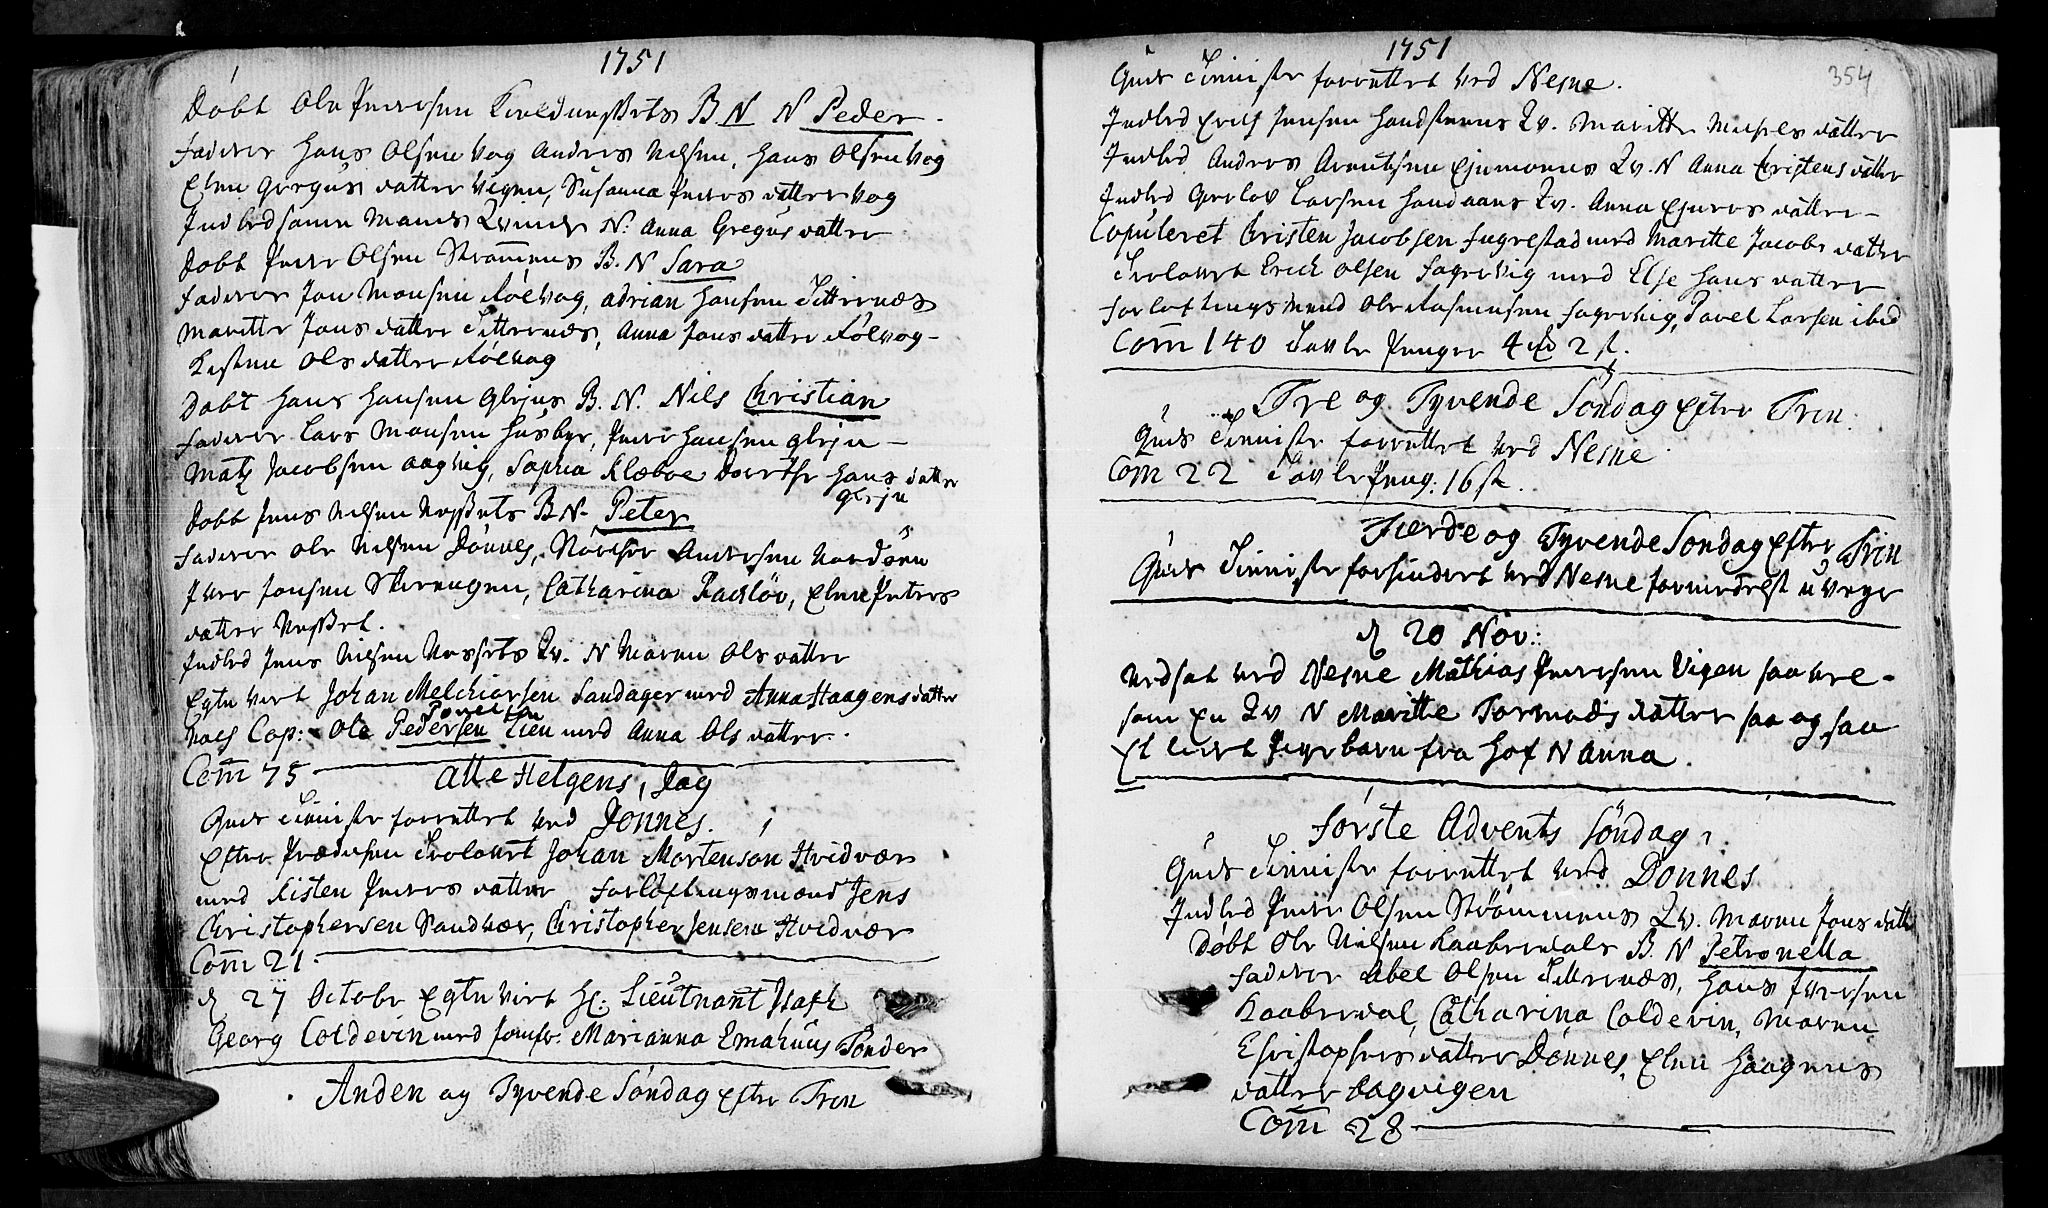 1751
Døbt Ole Pedersen Kieldungsets B N N Peder
Faddere Hans Olsen Vog Anders Nilsen, Hans Olsen Vog
Elen Gregus datter Vigen, Susanna Peders datter Vog
Indled samme Mands Qvinde N. Anna Gregus datter
Døbt Peder Olsen Strømmens B. N Sara
Faddere Jon Monsen Rølvog, Adrian Hansen Titternæs
Maritte Jons datter Titternæs, Anna Jons datter Rølvog
Kistine Ols datter Rølvog
Døbt Hans Hansen Glejns B. N. Nils Christian
Faddere Lars Monsen Husbye, Peder Hansen Glejn
Matz Jacobsen Aagvig, Sophia Klæboe Dorthe Hans datter
Glejn
Døbt Jens Nilsen B N. Peter
Faddere Ole Nilsen Dönnes, Andersen Nordøen
Iver Jonsen Skeravgen, Catharina Rachløv, Elen Peders
datter
Indled Jens Nilsen Qv. N Maren Ols datter
Egte Viet Johan Melchiorsen Sandager med Anna Haagens datter
Cop: Ole Pedersen med Anna Ols datter.
Com 75
Alle Helgens Dag
Guds Tieniste forrettet ved Dönnes.
Efter Prædiken Trolovet Johan Mortenson Hvidvær
med Kisten Peders datter Forløftingsmænd Jens
Christophersen Sandvær, Christopher Jensen Hvidvær
Com 21
d 27 Octobr Egte Viet Hr: Lieutnant Isach
Georg Coldevin med Jomfr: Marianna Emahuus Tønder
Anden og Tyvende Søndag Efter Tren
1751
354
Guds Tieniste forrettet ved Nesne.
Indled Jensen Qv. Maritte datter
Indled Anders Arentsen Qv. N Anna Kristens datter
Indled Gerlov Larsen Handaans Qv. Anna Ejvers datter
Copuleret Kristen Jacobsen med Maritte Jacobs datter
Trolovet Erich Olsen Fagervig med Else Hans datter
Forløftingsmend Ole Rasmusen Fagervig, Pavel Larsen ibid
Com 140 Tavle Penger 4 2 s.
Tre og Tyvende Söndag Efter Tren:
Guds Tieniste forrettet ved Nesne
Com 22 Tavle Peng: 16 s.
Fierde og Tyvende Søndag Efter Tren
Guds Tieniste forhindret ved Nesne formedelst uveyr
d 20 Nov:
ved Nesne Mathias Pedersen Vigen saa vel
som En Qv N Maritte Tormods datter saa og saa
Et lidet Pigebarn fra Hof N Anna.
Første Advents Søndag
Guds Tieniste forrettet ved Dönnes
Indled Peder Olsen Strømmens Qv. Maren Jons datter
Døbt Ole Nielsen Kaaberdals B. N Petronella
Faddere Abel Olsen Titternæs, Hans Iversen
Kaaberdal, Catharina Coldevin, Maren
Christophers datter Dönnes, Elen Haagens
datter Aagvigen
Com 28